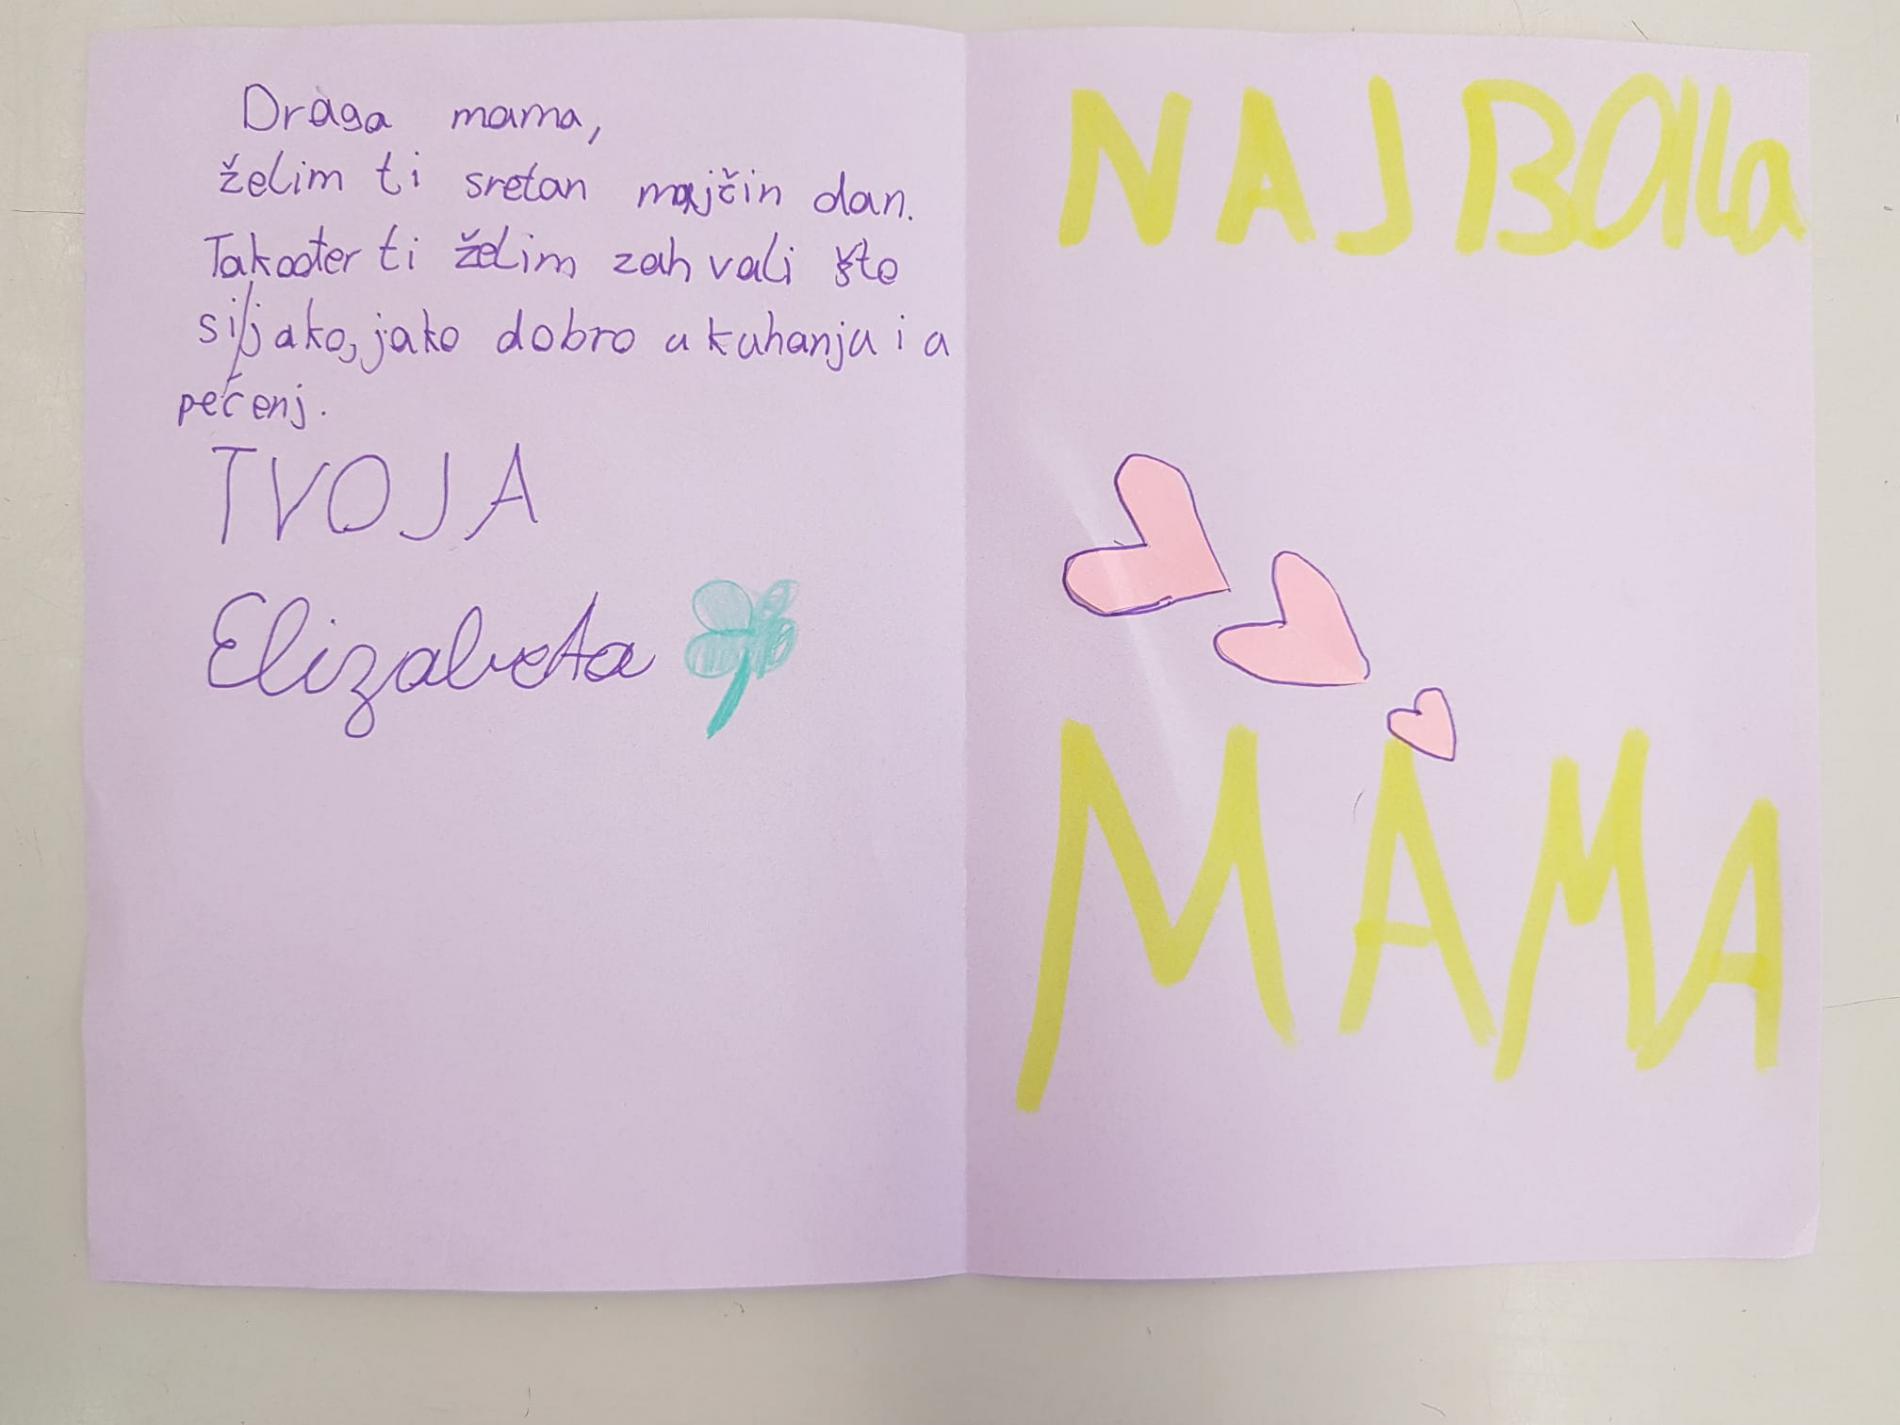 Draga mama,
želim ti sretan majčin dan.
Također ti želim zahvali što
si jako, jako dobro u kuhanju i u
pečenj.
TVOJA
Elizabeta
NAJBOLLa
MAMA